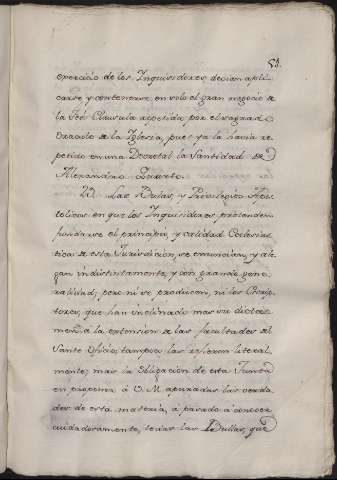 51.
exercicio de los Inquisidores devian apli-
carse, y contenerse en solo el gran negocio de
la Feè Clausula repetida por el sagrado
Oraculo de la Iglesia, pues ya la havia re-
petido en una Decretal la Santidad de
Alexandro Quarto.
Las Bulas, y Privilegios Apos-
tolicos en que los Inquisidores pretenden
fundarse el principio, y calidad Eclesias-
tica de esta Jurisdicion, se enuncian, y ale-
gan indistintamente, y con grande gene-
ralidad; pero ni se producen, ni los Escrip-
tores, que han inclinado mas su dicta-
men à la extension de las facultades del
Santo Oficio, tampoco las refieren literal-
mente; mas la obligacion de esta Junta
en proponer à V. M. apuradas las verda-
des de esta materia, à pasado à conocer
cuidadosamente, todas las Bullas, que